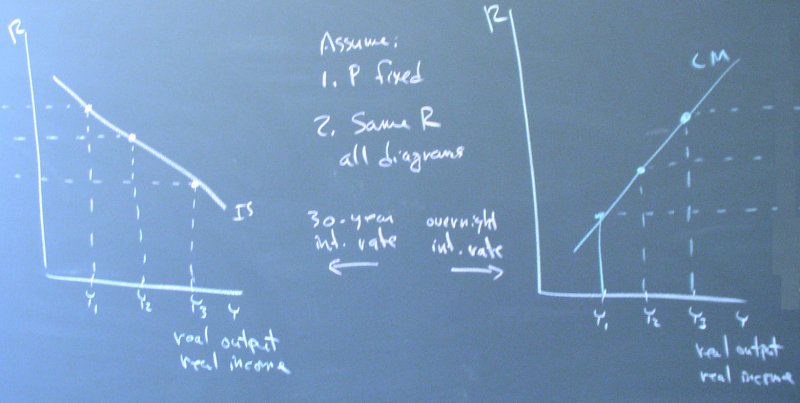 R
IS
Y1 Y2 Y3 Y
real output
real income
Assume:
1. P fixed
2. Same R
all diagrams
30-year
int. rate
overnight
int. rate
R
CM
Y1 Y2 Y3 Y
real output
real income